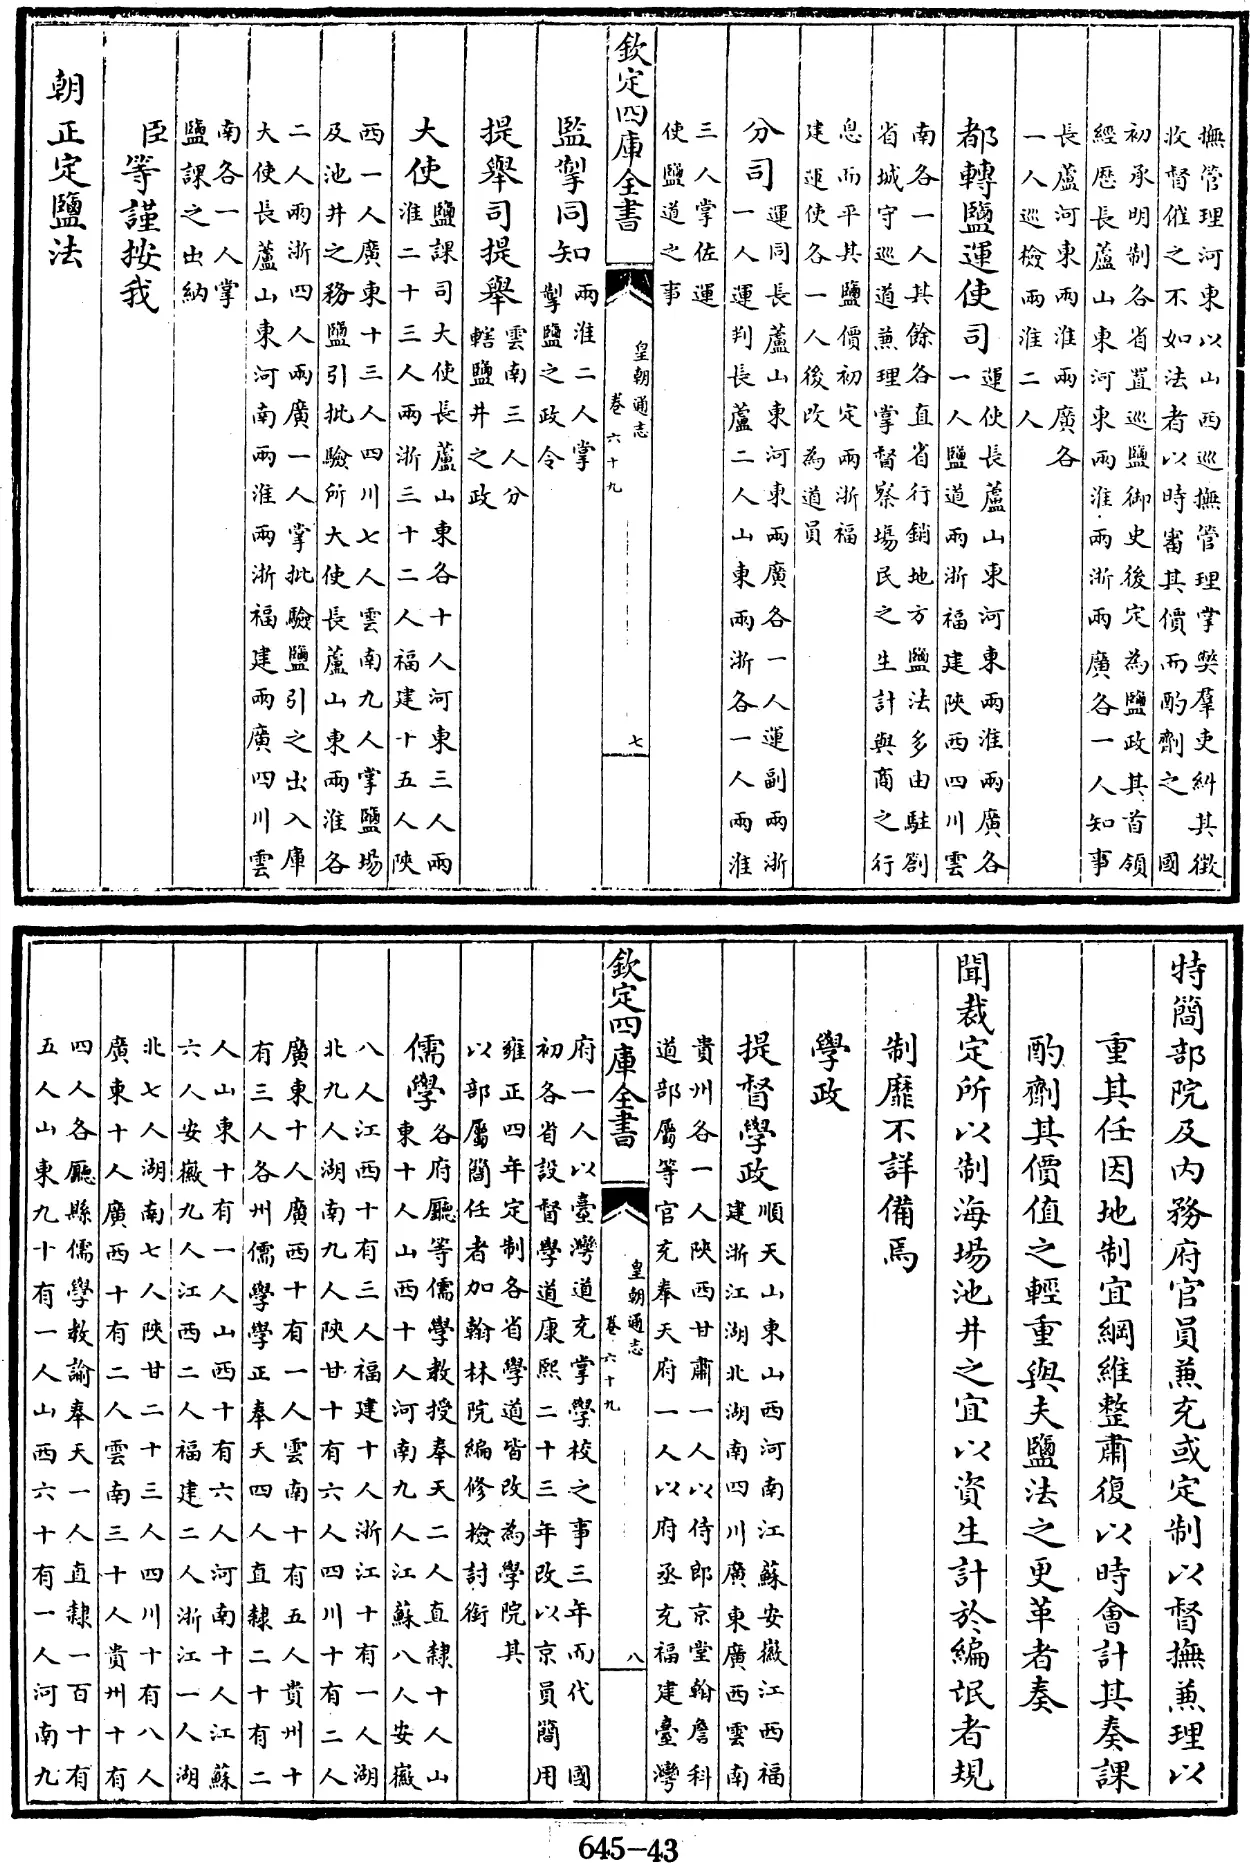 撫管理河東以山西巡撫管理掌樊羣吏糾其徵
收督催之不如法者以時審其價而酌劑之 國
初承明制各省置巡鹽御史後定為鹽政其首領
經歷長蘆山東河東兩淮兩浙兩廣各一人知事
長蘆河東兩淮兩廣各
一人巡檢兩淮二人
都轉鹽運使司 運使長蘆山東河東兩淮兩廣各
一人鹽道兩浙福建陝西四川雲
南各一人其餘各直省行銷地方鹽法多由駐劄
省城守巡道兼理掌督察塲民之生計與商之行
息而平其鹽價初定兩浙福
建運使各一人後改為道員
分司 運同長蘆山東河東兩廣各一人運副兩浙
一人運判長蘆二人山東兩浙各一人兩淮
三人掌佐運
使鹽道之事
欽定四庫全書 皇朝通志 卷六十九 七
監掣同知 兩淮二人掌
掣鹽之政令
提舉司提舉 雲南三人分
轄鹽井之政
大使 鹽課司大使長蘆山東各十人河東三人兩
淮二十三人兩浙三十二人福建十五人陝
西一人廣東十三人四川七人雲南九人掌鹽塲
及池井之務鹽引批驗所大使長蘆山東兩淮各
二人兩浙四人兩廣一人掌批驗鹽引之出入庫
大使長蘆山東河南兩淮兩浙福建兩廣四川雲
南各一人掌
鹽課之出納
臣等謹按我
朝正定鹽法
特簡部院及內務府官員兼充或定制以督撫兼理以
重其任因地制宜綱維整肅復以時會計其奏課
酌劑其價值之輕重與夫鹽法之更革者奏
聞裁定所以制海場池井之宜以資生計於編氓者規
制靡不詳備焉
學政
提督學政 順天山東山西河南江蘇安徽江西福
建浙江湖北湖南四川廣東廣西雲南
貴州各一人陝西甘肅一人以侍郎京堂翰詹科
道部屬等官充奉天府一人以府丞充福建臺灣
欽定四庫全書 皇朝通志 卷六十九 八
府一人以臺灣道充掌學校之事三年而代 國
初各省設督學道康熙二十三年改以京員簡用
雍正四年定制各省學道皆改為學院其
以部屬簡任者加翰林院編修檢討銜
儒學 各府廳等儒學教授奉天二人直隸十人山
東十人山西十人河南九人江蘇八人安徽
八人江西十有三人福建十人浙江十有一人湖
北九人湖南九人陝甘十有六人四川十有二人
廣東十人廣西十有一人雲南十有五人貴州十
有三人各州儒學學正奉天四人直隸二十有二
人山東十有一人山西十有六人河南十人江蘇
六人安徽九人江西二人福建二人浙江一人湖
北七人湖南七人陝甘二十三人四川十有八人
廣東十人廣西十有二人雲南三十人貴州十有
四人各廳縣儒學教諭奉天一人直隸一百十有
五人山東九十有一人山西六十有一人河南九
645-43